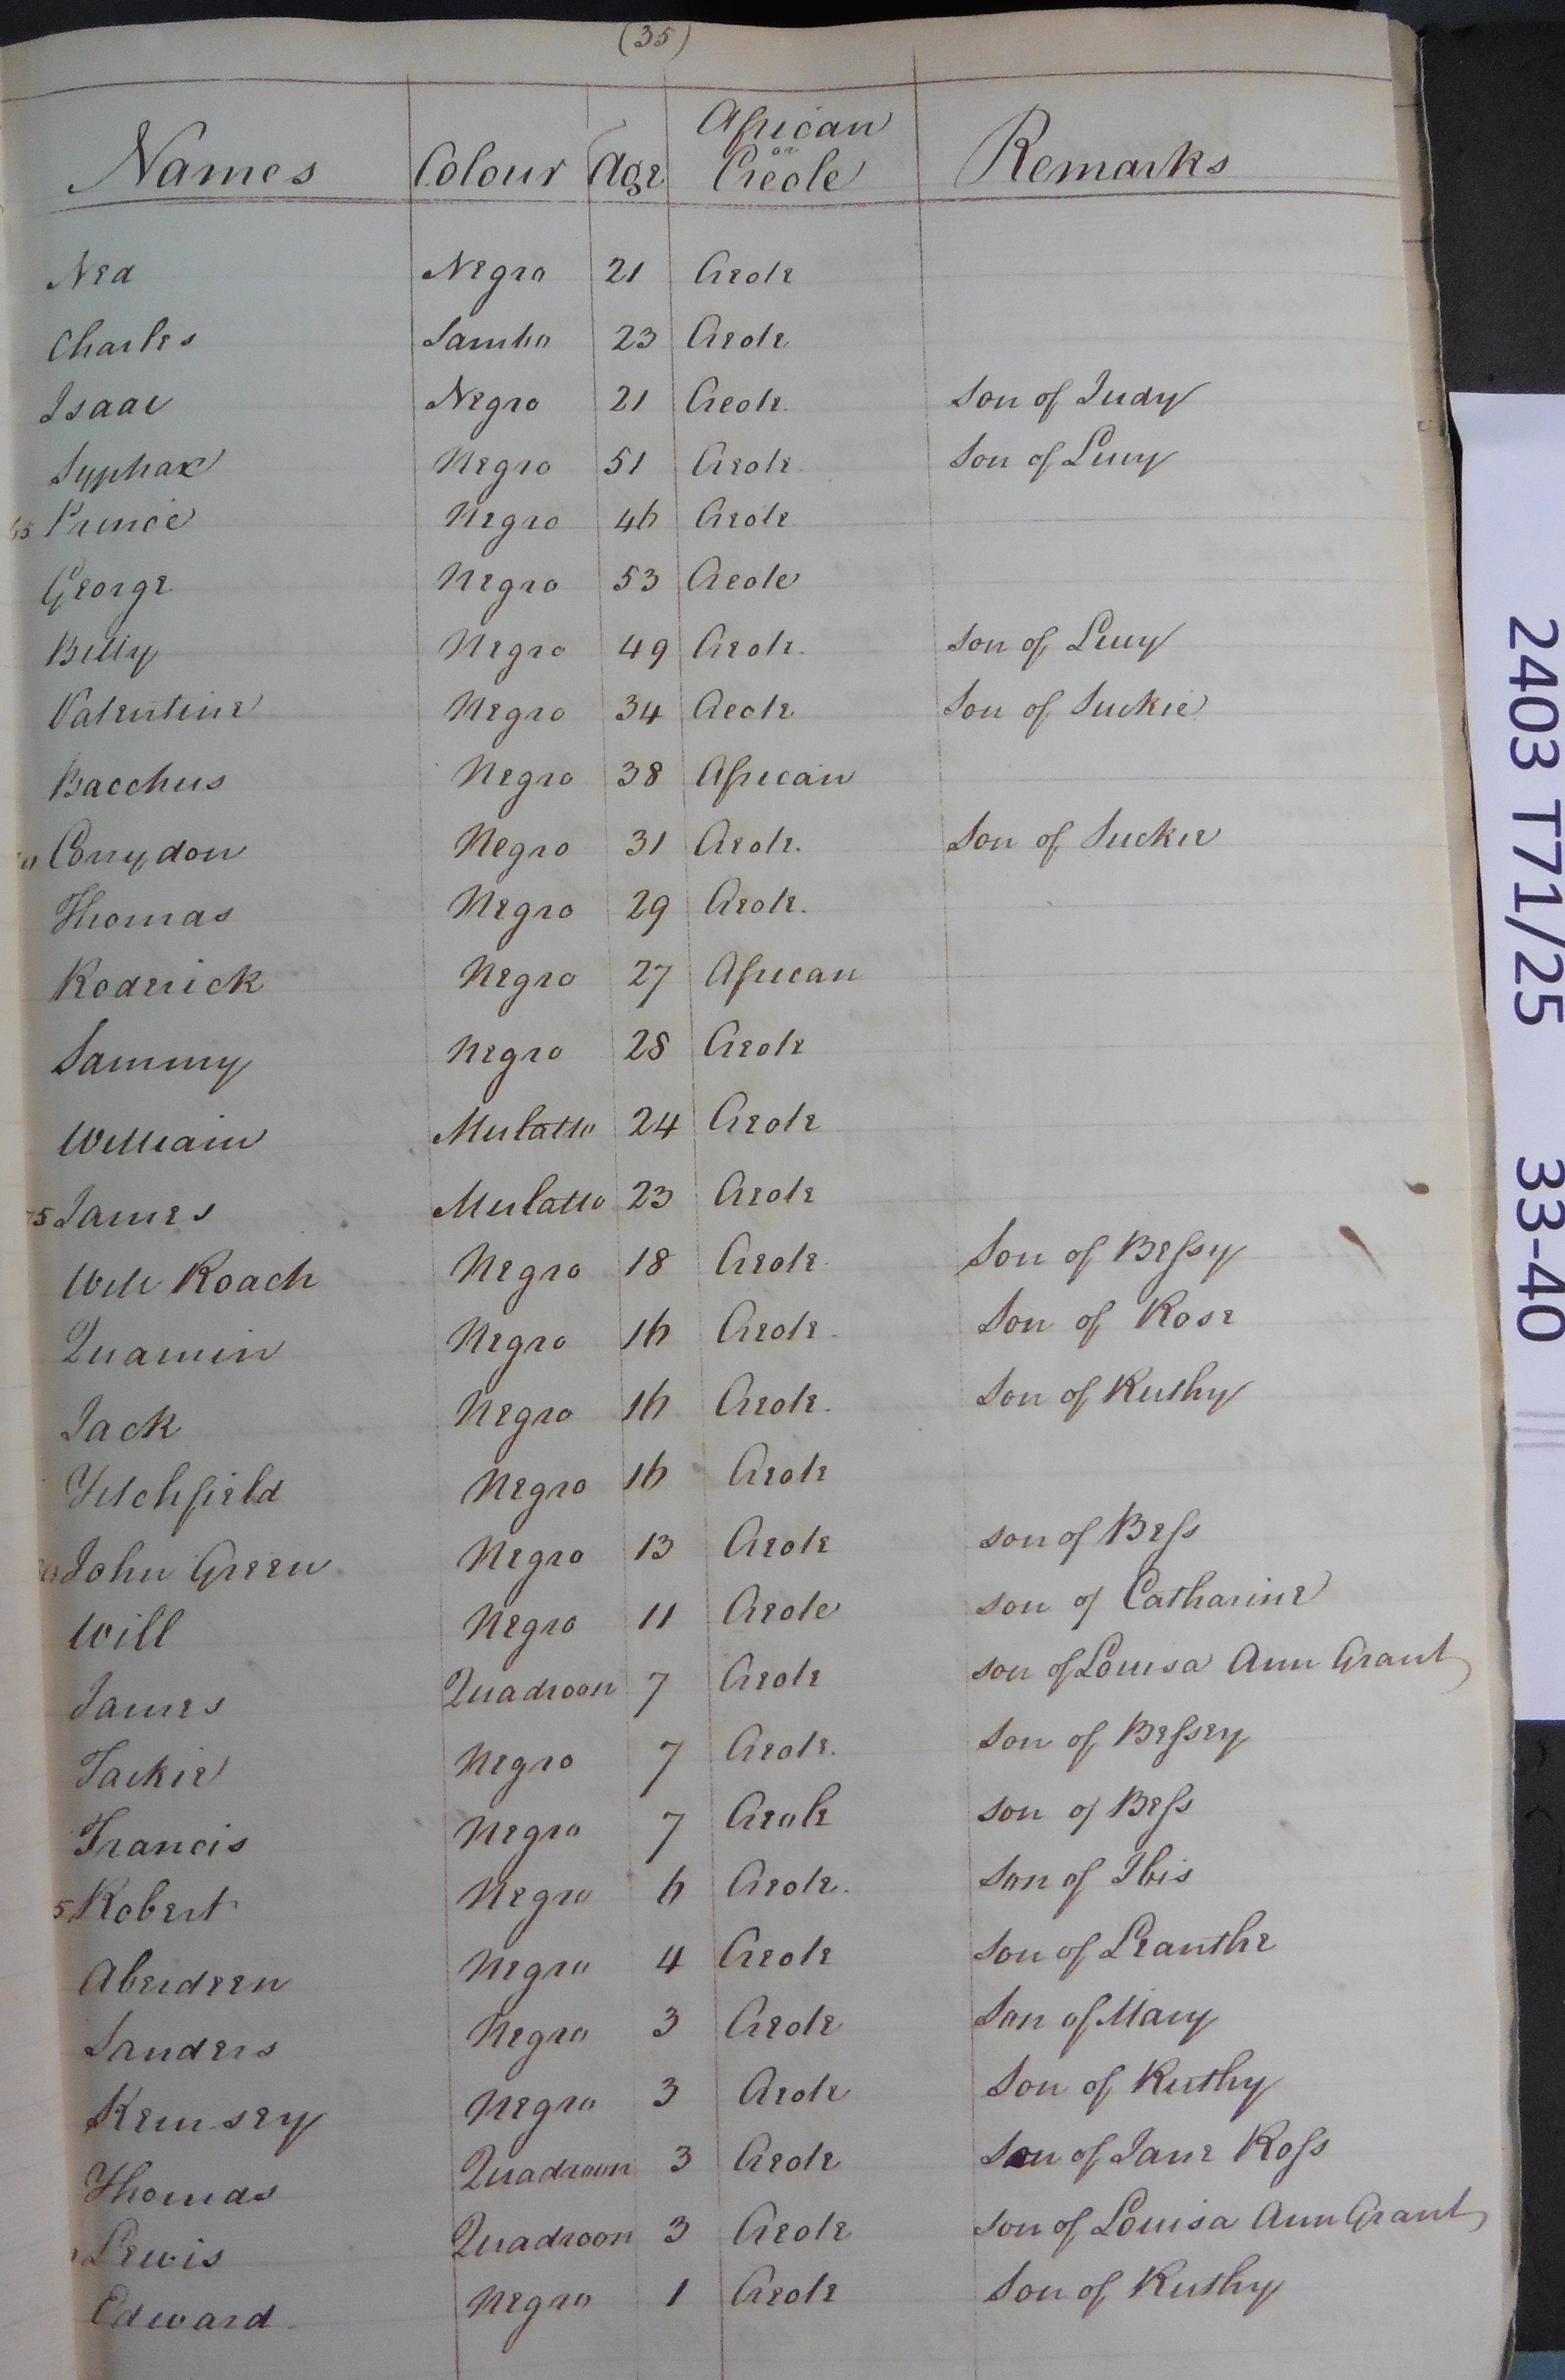 (35)
Names Colour Age African or Creole Remarks
Ned Negro 21 Creole
Charles Sambo 23 Creole
Isaac Negro 21 Creole. Son of Judy
Syphax Negro 51 Creole. Son of Lucy
65 Prince Negro 46 Creole
George Negro 53 Creole
Billy Negro 49 Creole. Son of Lucy
Valentine Negro 34 Creole Son of Suckie
Bacchus Negro 38 African
Corrydon Negro 31 Creole. Son of Suckie
Thomas Negro 29 Creole.
Roderick Negro 27 African
Sammy Negro 28 Creole
William Mulatto 24 Creole
75 James Mulatto 23 Creole
Will Roach Negro 18 Creole Son of Bessy
Quamin Negro 16 Creole Son of Rose
Jack Negro 16 Creole. Son of Ruthy
Negro 16 Creole
John Green Negro 13 Creole son of Bess
Will Negro 11 Creole son of Catharine
James Quadroon 7 Creole son of Louisa Ann Grant
Jackie Negro 7 Creole. Son of Bessey
Francis Negro 7 Creole son of Bess
5 Robert Negro 6 Creole. Son of Ibis
Aberdeen Negro 4 Creole Son of Leanthe
Sanders Negro 3 Creole Son of Mary
Kemsey Negro 3 Creole Son of Ruthy
Thomas Quadroon 3 Creole Son of Jane Ross
Lewis Quadroon 3 Creole Son of Louisa Ann Grant
Edward Negro 1 Creole Son of Ruthy
2403 T71/25 33-40